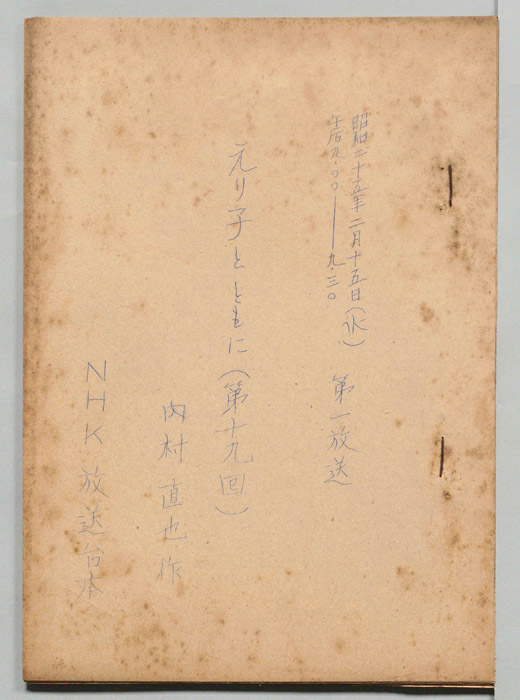 昭和二十五年二月十五日(水) 第一放送
午后九.〇〇―九.三〇
えり子とともに(第十九回)
内村直也作
NHK放送台本